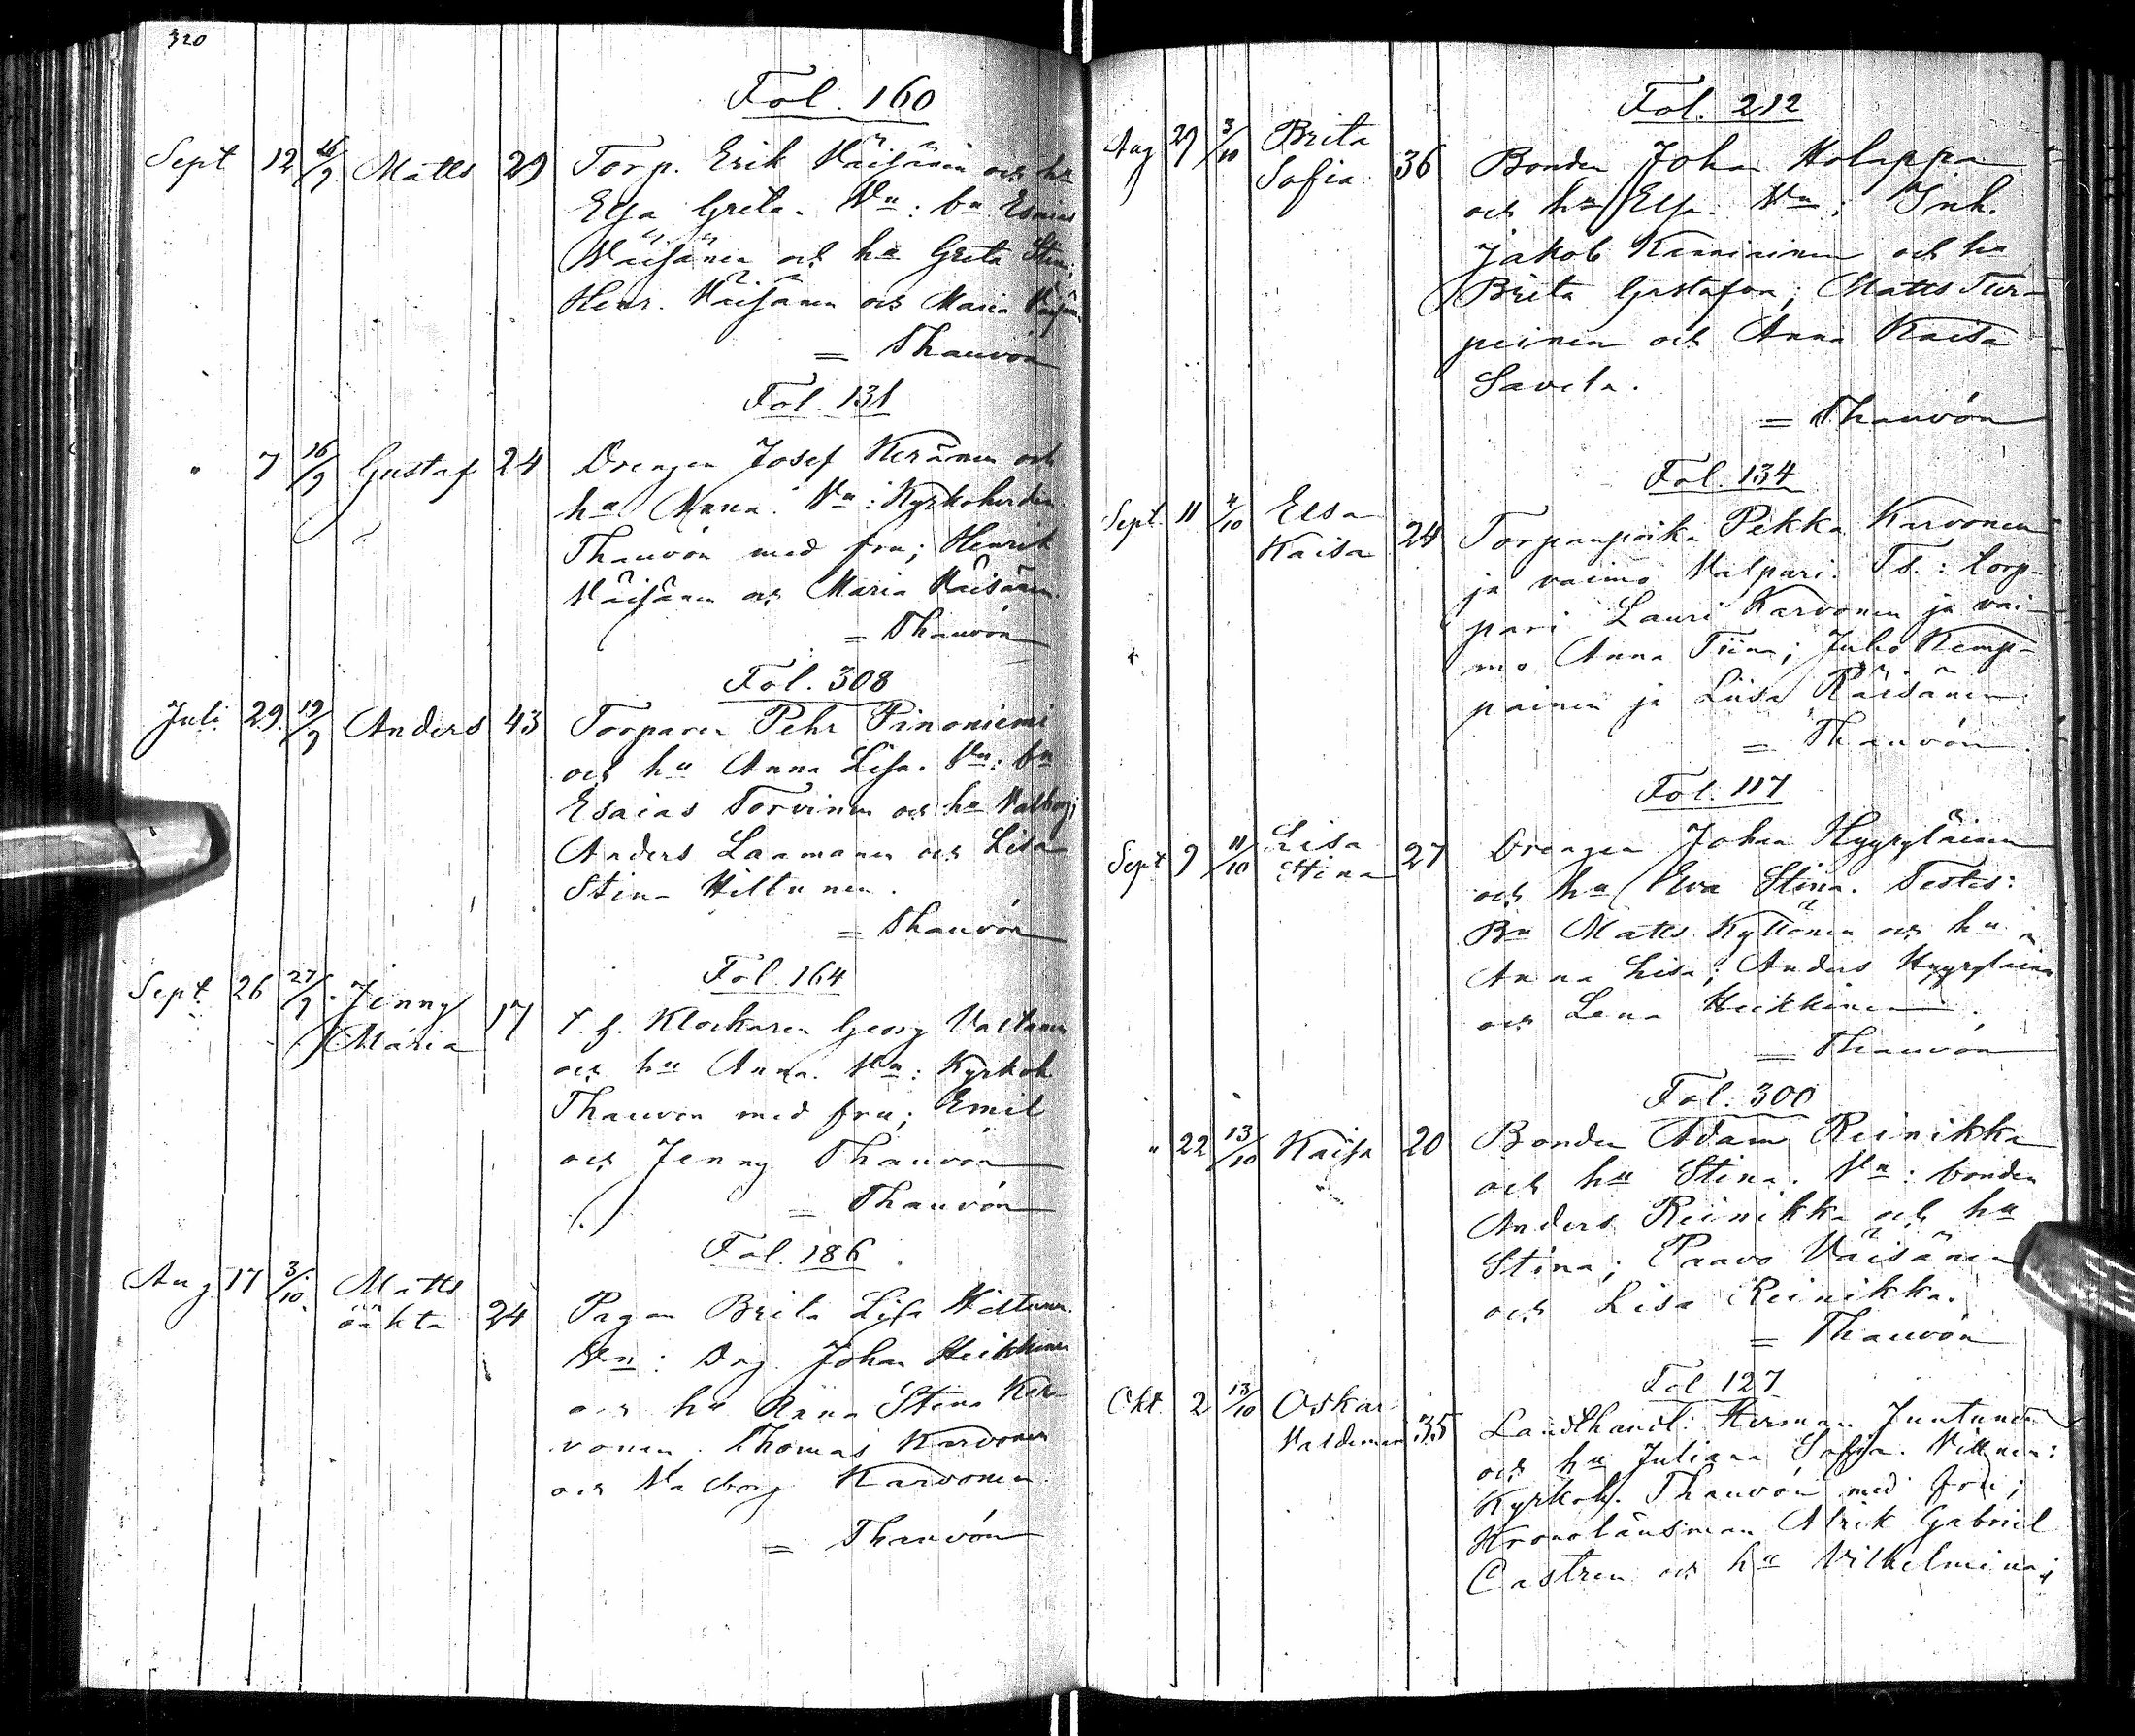 320
Fol. 160
Sept 12 16/9 Matts 29 Torp. Erik Väisänen och hu
Elsa Greta. Vn: bn Esaias
Väisänen och hu Greta Stina;
Henr. Väisänen och Maria Väisänen
= Thauvón
Fol. 131
" 7 16/9 Gustaf 24 Drengen Josef Keränen och
hu Anna. Vn: Kyrkoherden
Thauvón med fru; Henrik
Väisänen och Maria Väisänen.
= Thauvón
Fol. 308
Juli 29. 19/9 Anders 43 Torparen Pehr Pinoniemi
och hu Anna Lisa. Vn: bn
Esaias Torvinen och hu Valborg;
Anders Laamanen och Lisa
Stina Hiltunen.
= Thauvón
Fol. 164
Sept. 26 27/9 Jenny
Maria 17 t. f. Klockaren Georg Valtanen
och hu Anna. Vn: Kyrkoh.
Thauvón med fru; Emil
och Jenny Thauvón
= Thauvón
Fol. 186
Aug 17 3/10 Matts
oäkta 24 Pigan Brita Lisa Hiltunen
Vn: Drg. Johan Heikkinen
och hu Anna Stina Kar-
vonen, Thomas Karvonen
och Valborg Karvonen.
= Thauvón
Fol. 212
Aug 29 3/10 Brita
Sofia 36 Bonden Johan Holappa
och hu Elsa. Vn: Inh.
Jakob Kemiainen och hu
Brita Gustafva; Matts Tur-
peinen och Anna Kaisa
Savela.
= Thauvón
Fol. 134
Sept. 11 4/10 Elsa
Kaisa 24 Torpanpoika Pekka Karvonen
ja vaimo Valpuri. Ts.: torp-
pari Lauri Karvonen ja vai-
mo Anna Tiina; Juho Kemp-
painen ja Liisa Räisänen.
= Thauvón.
Fol. 117
Sept 9 11/10 Lisa
Stina 27 Drengen Johan Hyyryläinen
och hu Eva Stina. Testes:
Bn Matts Kyllönen och hu
Anna Lisa; Anders Hyyryläinen
och Lena Heikkinen.
= Thauvón
Fol. 300
" 22 13/10 Kaisa 20 Bonden Adam Reinikka
och hu Stina. Vn: bonden
Anders Reinikka och hu
Stina; Paavo Väisänen
och Lisa Reinikka.
= Thauvón
Fol. 127
Okt. 2 13/10 Oskar
Valdemar 35 Landthandl. Herman Juntunen
och hu Juliana Sofia. Vittnen:
Kyrkoh. Thauvón med fru;
Kronolänsman Alrik Gabriel
Castren och hu Vilhelmina;